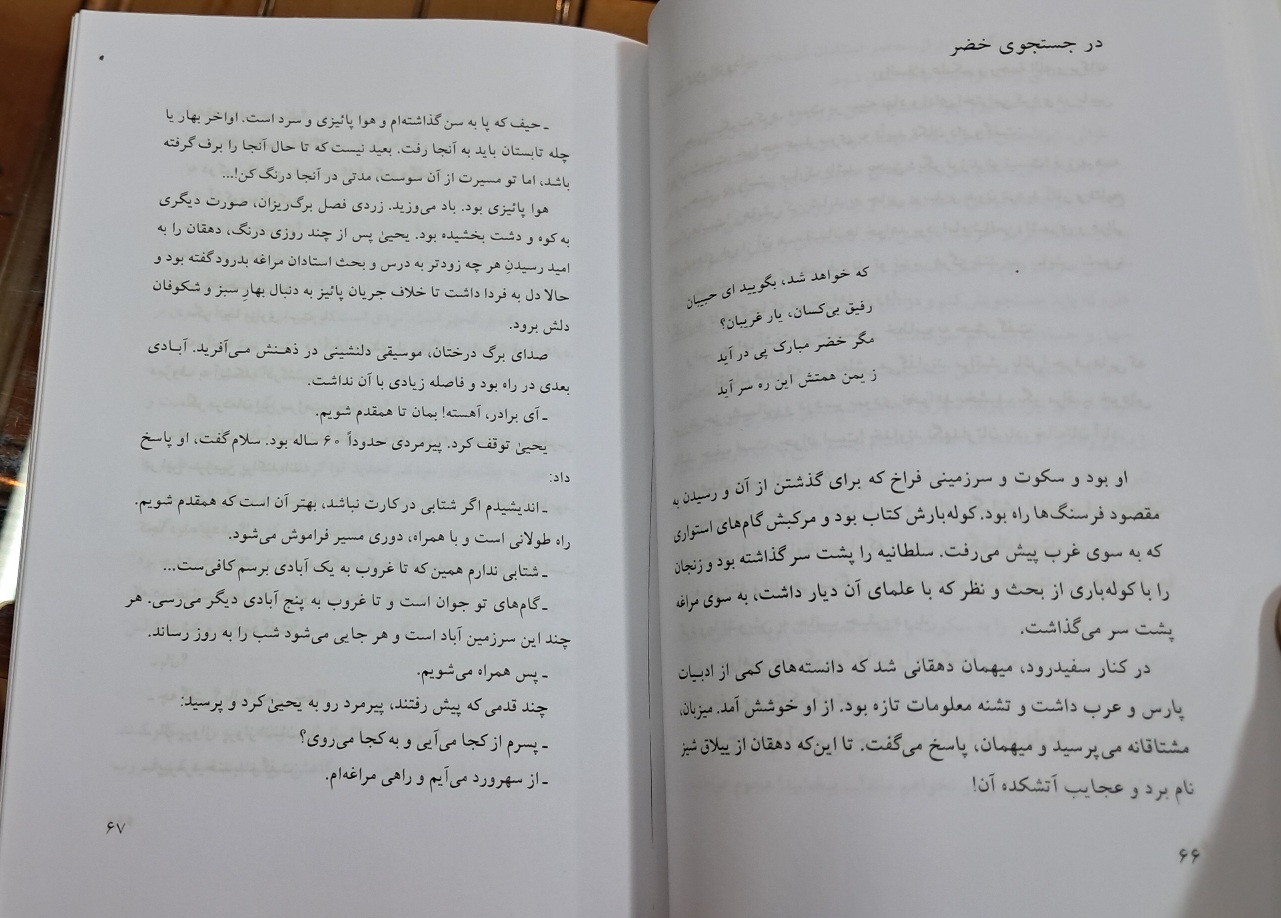 در جستجوی خضر
که خواهد شد، بگویید ای حبیبان
رفیق بی‌کسان، یار غریبان؟
مگر خضر مبارک پی در آید
ز یمن همتش این ره سر آید
او بود و سکوت و سرزمینی فراخ که برای گذشتن از آن و رسیدن به
مقصود فرسنگ‌ها راه بود. کوله‌بارش کتاب بود و مرکبش گام‌های استواری
که به سوی غرب پیش می‌رفت. سلطانیه را پشت سر گذاشته بود و زنجان
را با کوله‌باری از بحث و نظر که با علمای آن دیار داشت، به سوی مراغه
پشت سر می‌گذاشت.
در کنار سفیدرود، میهمان دهقانی شد که دانسته‌های کمی از ادبیات
پارس و عرب داشت و تشنه معلومات تازه بود. از او خوشش آمد. میزبان،
مشتاقانه می‌پرسید و میهمان، پاسخ می‌گفت. تا این‌که دهقان از ییلاق شیز
نام برد و عجایب آتشکده آن!
۶۶
ـ حیف که پا به سن گذاشته‌ام و هوا پائیزی و سرد است. اواخر بهار یا
چله تابستان باید به آنجا رفت. بعید نیست که تا حال آنجا را برف گرفته
باشد، اما تو مسیرت از آن سوست، مدتی در آنجا درنگ کن!...
هوا پائیزی بود. باد می‌وزید. زردی فصل برگ‌ریزان، صورت دیگری
به کوه و دشت بخشیده بود. یحییٰ پس از چند روزی درنگ، دهقان را به
امید رسیدنِ هر چه زودتر به درس و بحث استادان مراغه بدرود گفته بود و
حالا دل به فردا داشت تا خلاف جریان پائیز به دنبال بهارِ سبز و شکوفان
دلش برود.
صدای برگ درختان، موسیقی دلنشینی در ذهنش می‌آفرید. آبادی
بعدی در راه بود و فاصله زیادی با آن نداشت.
ـ آی برادر، آهسته! بمان تا همقدم شویم.
یحییٰ توقف کرد. پیرمردی حدوداً ۶۰ ساله بود. سلام گفت، او پاسخ
داد:
ـ اندیشیدم اگر شتابی در کارت نباشد، بهتر آن است که همقدم شویم.
راه طولانی است و با همراه، دوری مسیر فراموش می‌شود.
ـ شتابی ندارم همین که تا غروب به یک آبادی برسم کافی‌ست...
ـ گام‌های تو جوان است و تا غروب به پنج آبادی دیگر می‌رسی. هر
چند این سرزمین آباد است و هر جایی می‌شود شب را به روز رساند.
ـ پس همراه می‌شویم.
چند قدمی که پیش رفتند، پیرمرد رو به یحییٰ کرد و پرسید:
ـ پسرم از کجا می‌آیی و به کجا می‌روی؟
ـ از سهرورد می‌آیم و راهی مراغه‌ام.
۶۷